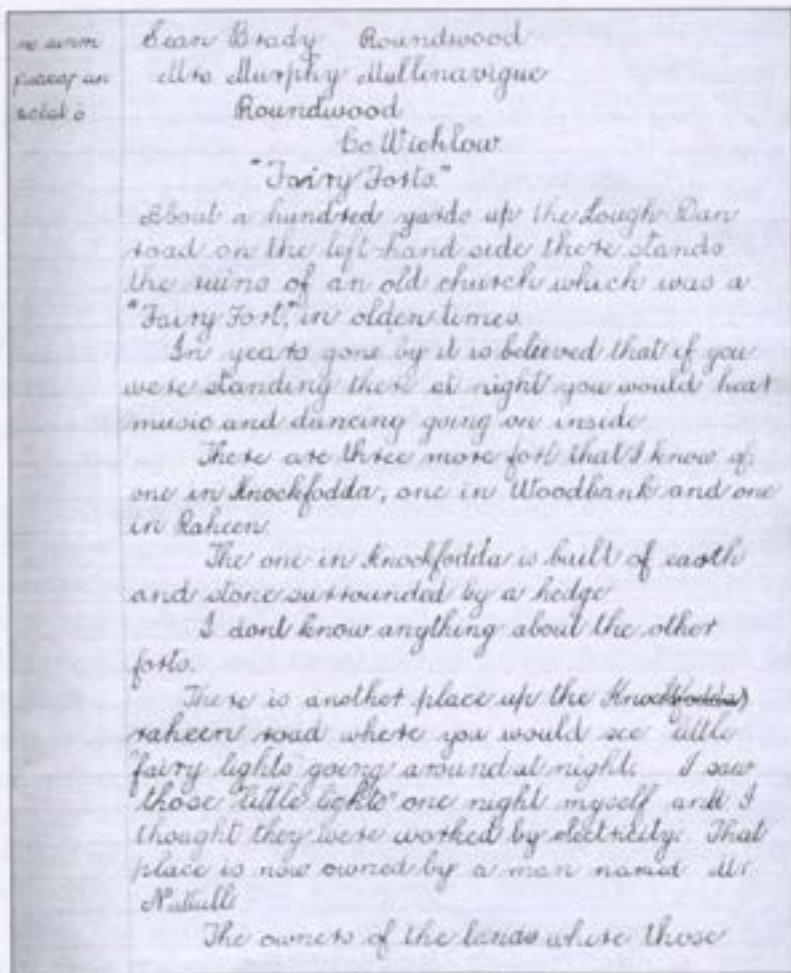 Sean Brady Roundwood
Mrs Murphy Mullinavigue
Roundwood
Co Wicklow
"Fairy Forts."
About a hundred yards up the Lough Dan
road on the left-hand side there stands
the ruins of an old church which was a
"Fairy Fort," in olden times.
In years gone by it is believed that if you
were standing there at night you would hear
music and dancing going on inside.
There are three more fort that I know of;
one in Knockfodda, one in Woodbank and one
in Raheen.
The one in Knockfodda is built of earth
and stone surrounded by a hedge
I dont know anything about the other
forts.
There is another place up the Knockfodda
raheen road where you would see little
fairy lights going around at night. I saw
"those little lights" one night myself and I
thought they were worked by electricity. That
place is now owned by a man named Mr
The owners of the lands where those